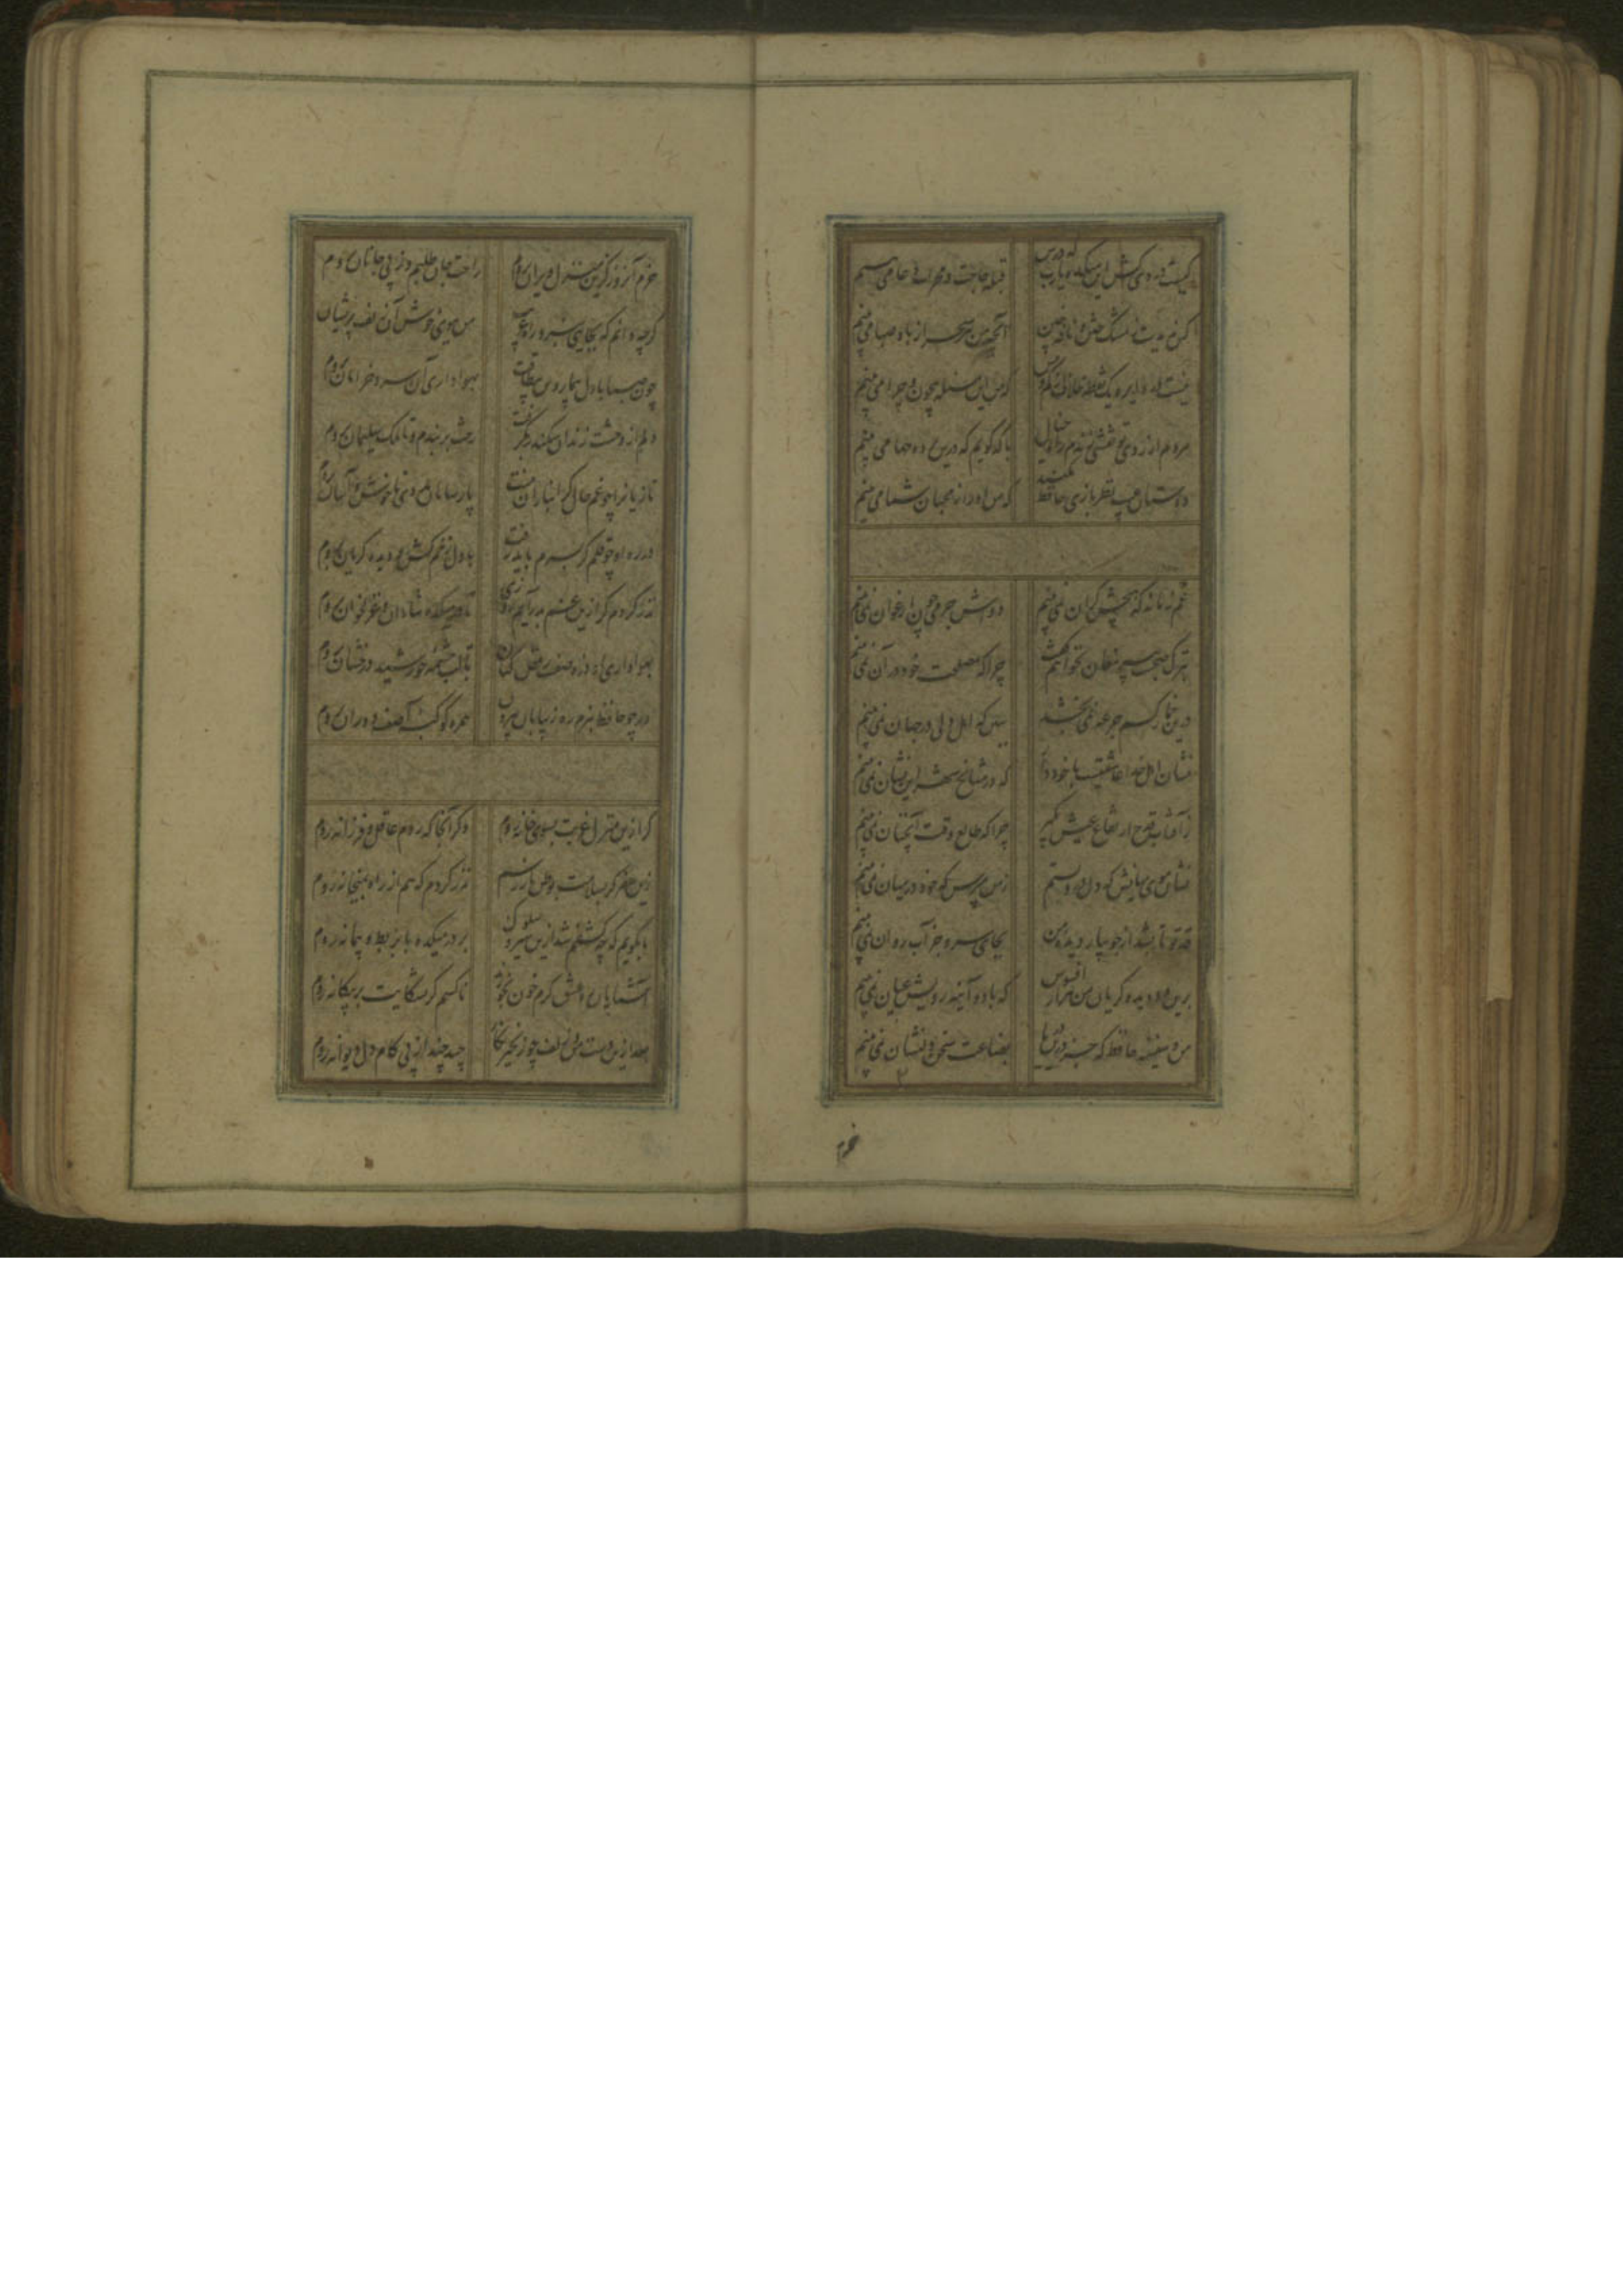 کیست دردی کش این میکده یارب که درش قبله حاجت و محراب دعا می بینم
کس ندیدست ز مشک ختن و نافه چین آنچه من هر سحر از باد صبا می بینم
نیست در دایره یک نقطه خلاف از کم و بیش که من این مسئله بیچون و چرا می بینم
هر دم از روی تو نقشی زندم راه خیال با که گویم که درین پرده چها می بینم
دوستان عیب نظربازی حافظ مکنید که من او را ز محبان شما می بینم
غم زمانه که هیچش کران نمی بینم دواش جز می چون ارغوان نمی بینم
بترک صحبت پیر مغان نخواهم گفت چرا که مصلحت خود در آن نمی بینم
درین خمار کسم جرعه نمی بخشد ببین که اهل دلی در جهان نمی بینم
نشان اهل خدا عاشقیست با خود دار که در مشایخ شهر این نشان نمی بینم
ز آفتاب قدح ارتفاع عیش بگیر چرا که طالع وقت آنچنان نمی بینم
نشان موی میانش که دل درو بستم ز من مپرس که خود در میان نمی بینم
قد تو تا بشد از جویبار دیده من بجای سرو جز آب روان نمی بینم
برین دو دیده گریان من هزار افسوس که با دو آینه رویش عیان نمی بینم
من و سفینه حافظ که جز درین دریا بضاعت سخن دلنشان نمی بینم
خرم
خرم آنروز کزین منزل ویران بروم راحت جان طلبم وز پی جانان بروم
گرچه دانم که بجایی نبرد راه غریب من ببوی خوش آن زلف پریشان
چون صبا با دل بیمار و تن بیطاقت بهواداری آن سرو خرامان بروم
دلم از وحشت زندان سکندر بگرفت رخت بربندم و تا ملک سلیمان بروم
تازیانرا چو غم حال گرانباران نیست پارسایان مددی تا خوش و آسان بروم
در ره او چو قلم گر بسرم باید رفت با دل زخم کش و دیده گریان بروم
نذر کردم گر ازین غم بدرآیم روزی تا در میکده شادان و غزلخوان بروم
بهواداری او ذره صفت رقص کنان تا لب چشمه خورشید درخشان بروم
ور چو حافظ نبرم ره ز بیابان بیرون همره کوکبه آصف دوران بروم
گر ازین منزل غربت بسوی خانه روم دگر آنجا که روم عاقل و فرزانه روم
زین سفر گر بسلامت بوطن باز رسم نذر کردم که هم از راه بمیخانه روم
تا بگویم که چه کشفم شد ازین سیر و سلوک بر در میکده با بربط و پیمانه روم
آشنایان ره عشق گرم خون بخورند ناکسم گر بشکایت بر بیگانه روم
بعد ازین دست من و زلف چو زنجیر نگار چند چند از پی کام دل دیوانه روم